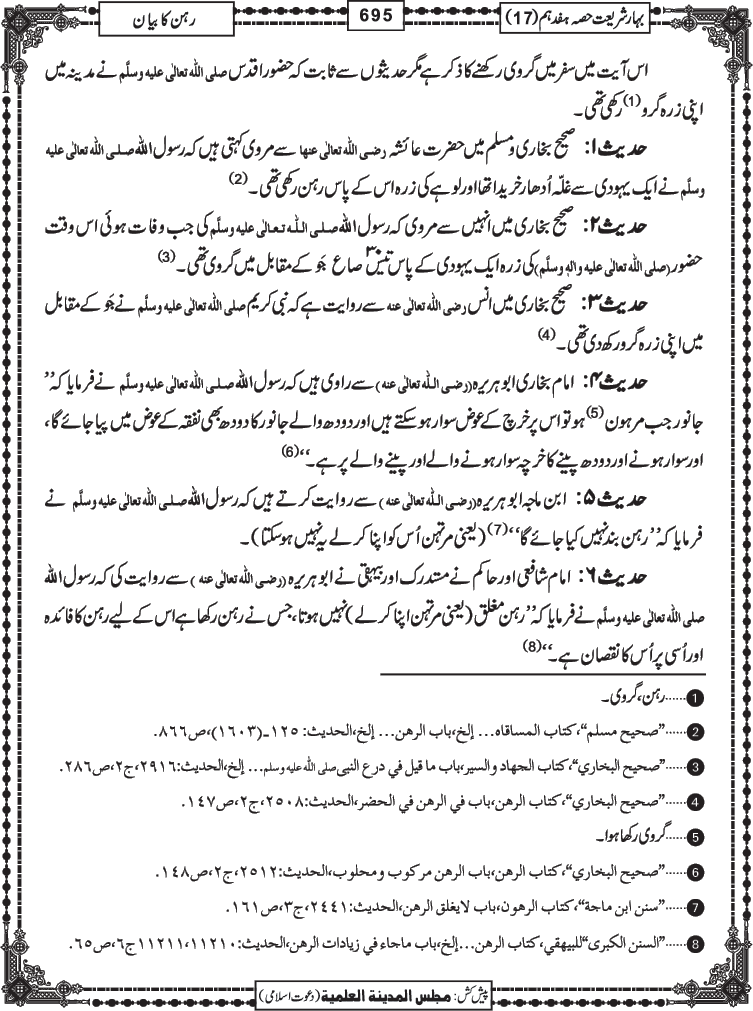 بہار شریعت حصہ ہفدہم (17)
695
رہن کا بیان
اس آیت میں سفر میں گروی رکھنے کا ذکر ہے مگر حدیثوں سے ثابت کہ حضور اقدس صلی اللہ تعالیٰ علیہ وسلَّم نے مدینہ میں
اپنی زرہ گرو (1) رکھی تھی۔
حدیث ۱: صحیح بخاری و مسلم میں حضرت عائشہ رضی اللہ تعالیٰ عنہا سے مروی کہتی ہیں کہ رسول اللہ صلی اللہ تعالیٰ علیہ
وسلَّم نے ایک یہودی سے غلّہ اُدھار خریدا تھا اور لوہے کی زرہ اس کے پاس رہن رکھی تھی۔ (2)
حدیث ۲: صحیح بخاری میں انہیں سے مروی کہ رسول اللہ صلی اللہ تعالیٰ علیہ وسلَّم کی جب وفات ہوئی اس وقت
حضور (صلی اللہ تعالیٰ علیہ واٰلہٖ وسلَّم) کی زرہ ایک یہودی کے پاس تیس ۳۰ صاع جَو کے مقابل میں گروی تھی۔ (3)
حدیث ۳: صحیح بخاری میں انس رضی اللہ تعالیٰ عنہ سے روایت ہے کہ نبی کریم صلی اللہ تعالیٰ علیہ وسلَّم نے جَو کے مقابل
میں اپنی زرہ گرو رکھ دی تھی۔ (4)
حدیث ۴: امام بخاری ابو ہریرہ (رضی اللہ تعالیٰ عنہ) سے راوی ہیں کہ رسول اللہ صلی اللہ تعالیٰ علیہ وسلَّم نے فرمایا کہ ’’
جانور جب مرہون (5) ہو تو اس پر خرچ کے عوض سوار ہوسکتے ہیں اور دودھ والے جانور کا دودھ بھی نفقہ کے عوض میں پیا جائے گا،
اور سوار ہونے اور دودھ پینے کا خرچہ سوار ہونے والے اور پینے والے پر ہے۔‘‘ (6)
حدیث ۵: ابن ماجہ ابو ہریرہ (رضی اللہ تعالیٰ عنہ) سے روایت کرتے ہیں کہ رسول اللہ صلی اللہ تعالیٰ علیہ وسلَّم نے
فرمایا کہ ’’رہن بند نہیں کیا جائے گا‘‘ (7) (یعنی مرتہن اُس کو اپنا کرلے یہ نہیں ہوسکتا)۔
حدیث ۶: امام شافعی اور حاکم نے مستدرک اور بیہقی نے ابو ہریرہ (رضی اللہ تعالیٰ عنہ) سے روایت کی کہ رسول اللہ
صلی اللہ تعالیٰ علیہ وسلَّم نے فرمایا کہ ’’رہن مغلق (یعنی مرتہن اپنا کرلے) نہیں ہوتا، جس نے رہن رکھا ہے اس کے لیے رہن کا فائدہ
اور اُسی پر اُس کا نقصان ہے۔‘‘ (8)
1 ......رہن، گروی۔
2 ......”صحيح مسلم“، كتاب المساقاه... إلخ، باب الرهن... إلخ، الحديث: ١٢٥ـ(١٦٠٣)، ص٨٦٦.
3 ......”صحيح البخاري“، كتاب الجهاد والسير، باب ما قيل في درع النبي صلی اللہ علیہ وسلم... إلخ، الحديث: ٢٩١٦، ج٢، ص٢٨٦.
4 ......”صحيح البخاري“، كتاب الرهن، باب في الرهن في الحضر، الحديث: ٢٥٠٨، ج٢، ص١٤٧.
5 ......گروی رکھا ہوا۔
6 ......”صحيح البخاري“، كتاب الرهن، باب الرهن مركوب ومحلوب، الحديث: ٢٥١٢، ج٢، ص١٤٨.
7 ......”سنن ابن ماجة“، كتاب الرهون، باب لايغلق الرهن، الحديث: ٢٤٤١، ج٣، ص١٦١.
8 ......”السنن الكبرى“ للبيهقي، كتاب الرهن... إلخ، باب ماجاء في زيادات الرهن، الحديث: ١١٢١٠، ١١٢١١ ج٦، ص٦٥.
پیش کش: مجلس المدینة العلمیة (دعوت اسلامی)